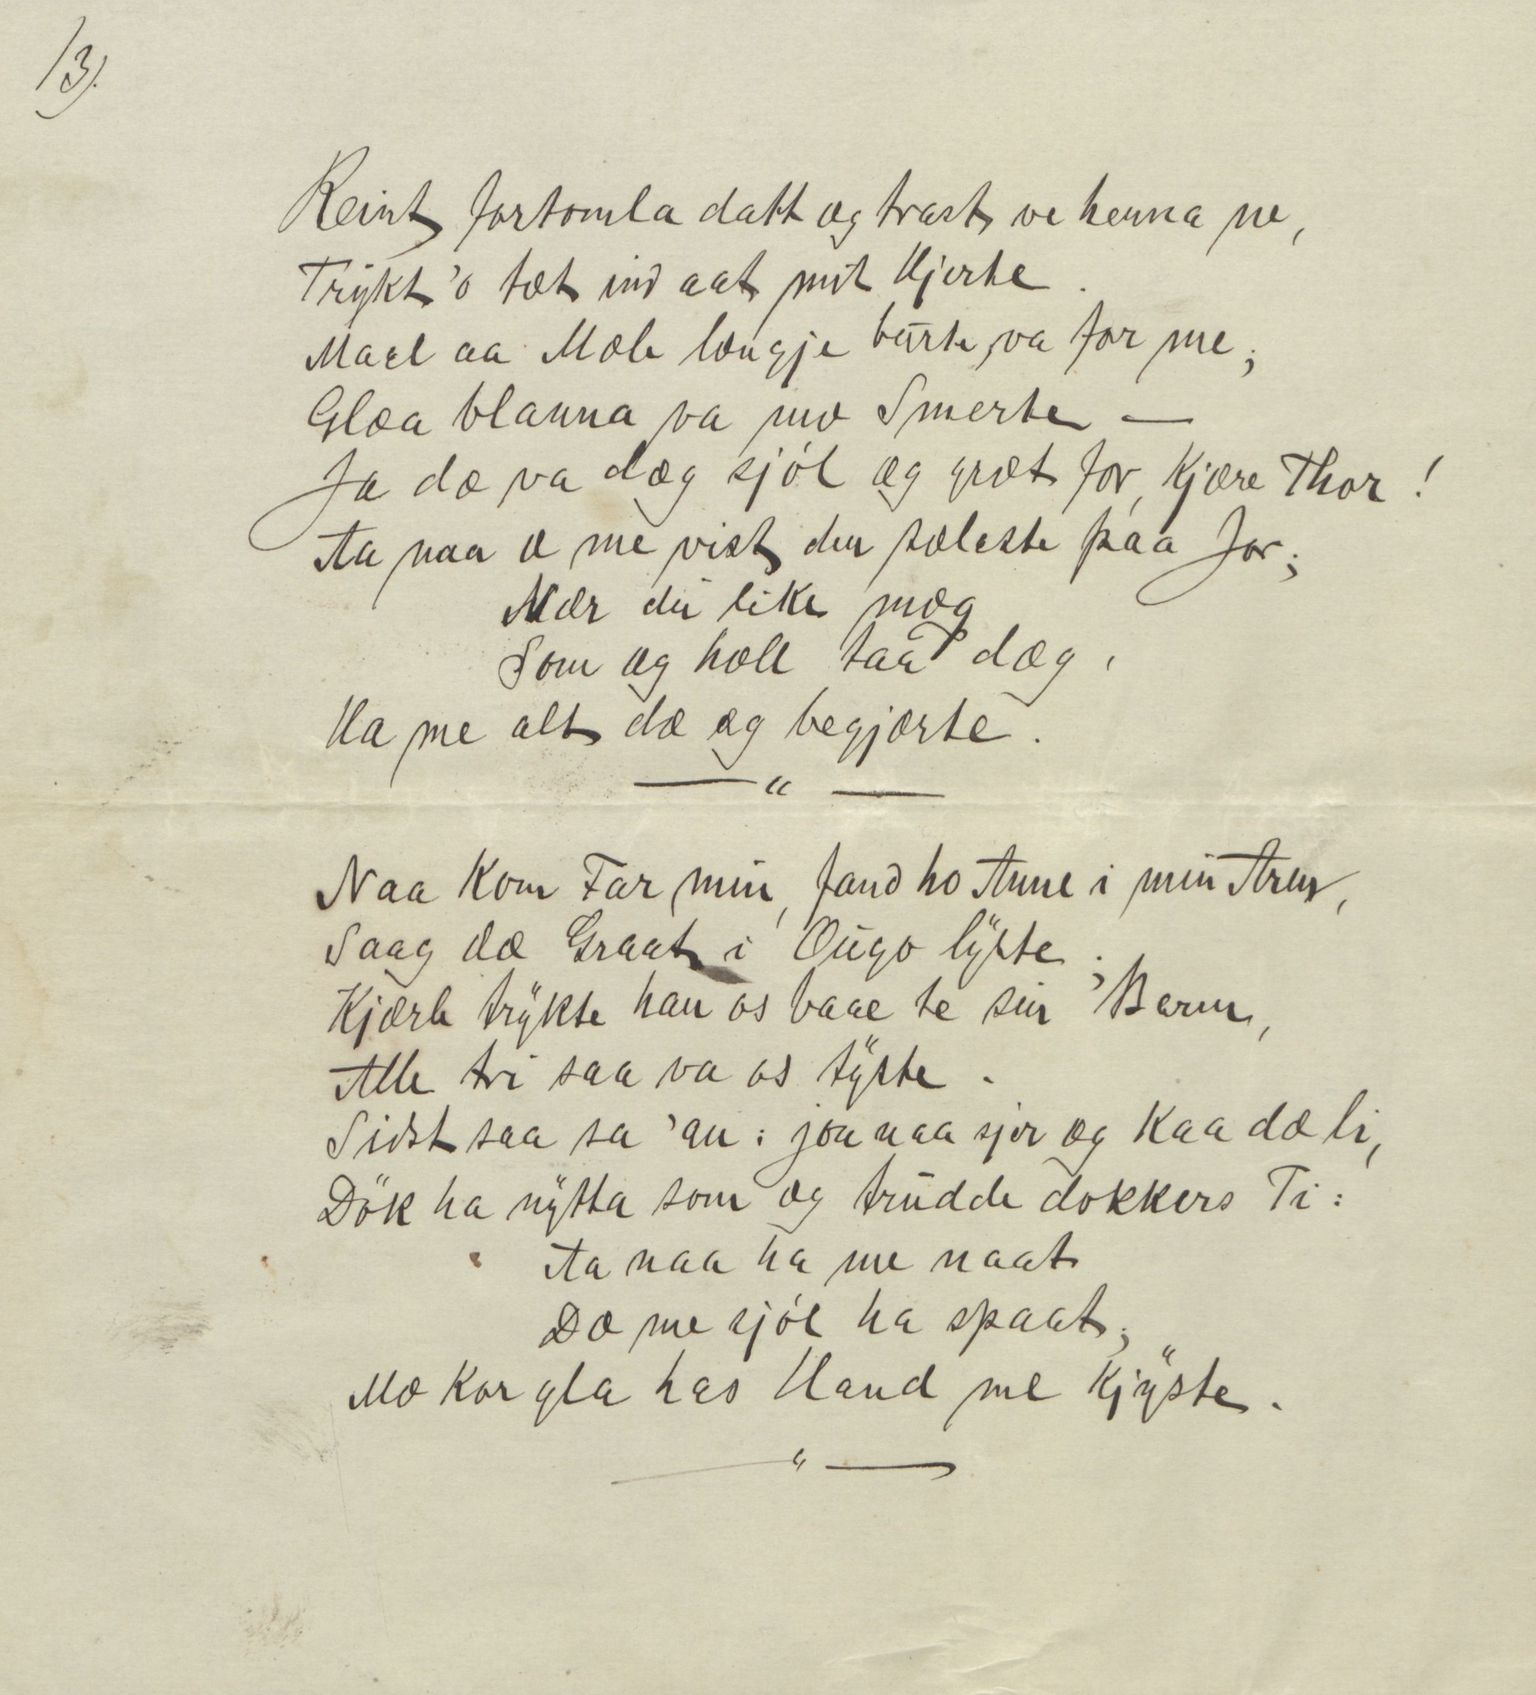 13).
Reint fortomla datt æg trast ve henna ne,
Trÿkt 'o tæt ind aat mit Hjerte.
Mael aa Mæle længje bürte va for me;
Glæa blanna va mæ Smerte —
Ja dæ va dæg sjöl æg græt for, Kjære Thor!
Aa naa æ me vist den sæleste paa Jor;
Nær dü like mæg
Som æg hæll taa dæg,
Ha me alt dæ æg begjærte.
— " —
Naa Kom Far min, fand ho Anne i min Arm,
Saag dæ Graat i Ougo lÿste;
Kjærle trÿkte han os baae te sin Barm,
Alle tri saa va os tÿste.
Sidst saa sa 'an: joa naa sjer æg Kaa dæ li,
Dök ha nÿtta som æg trudde dokkers Ti:
Aa naa ha me naat
Dæ me sjöl ha spaat;
Mæ Kor gla has Hand me Kjÿste.
— " —